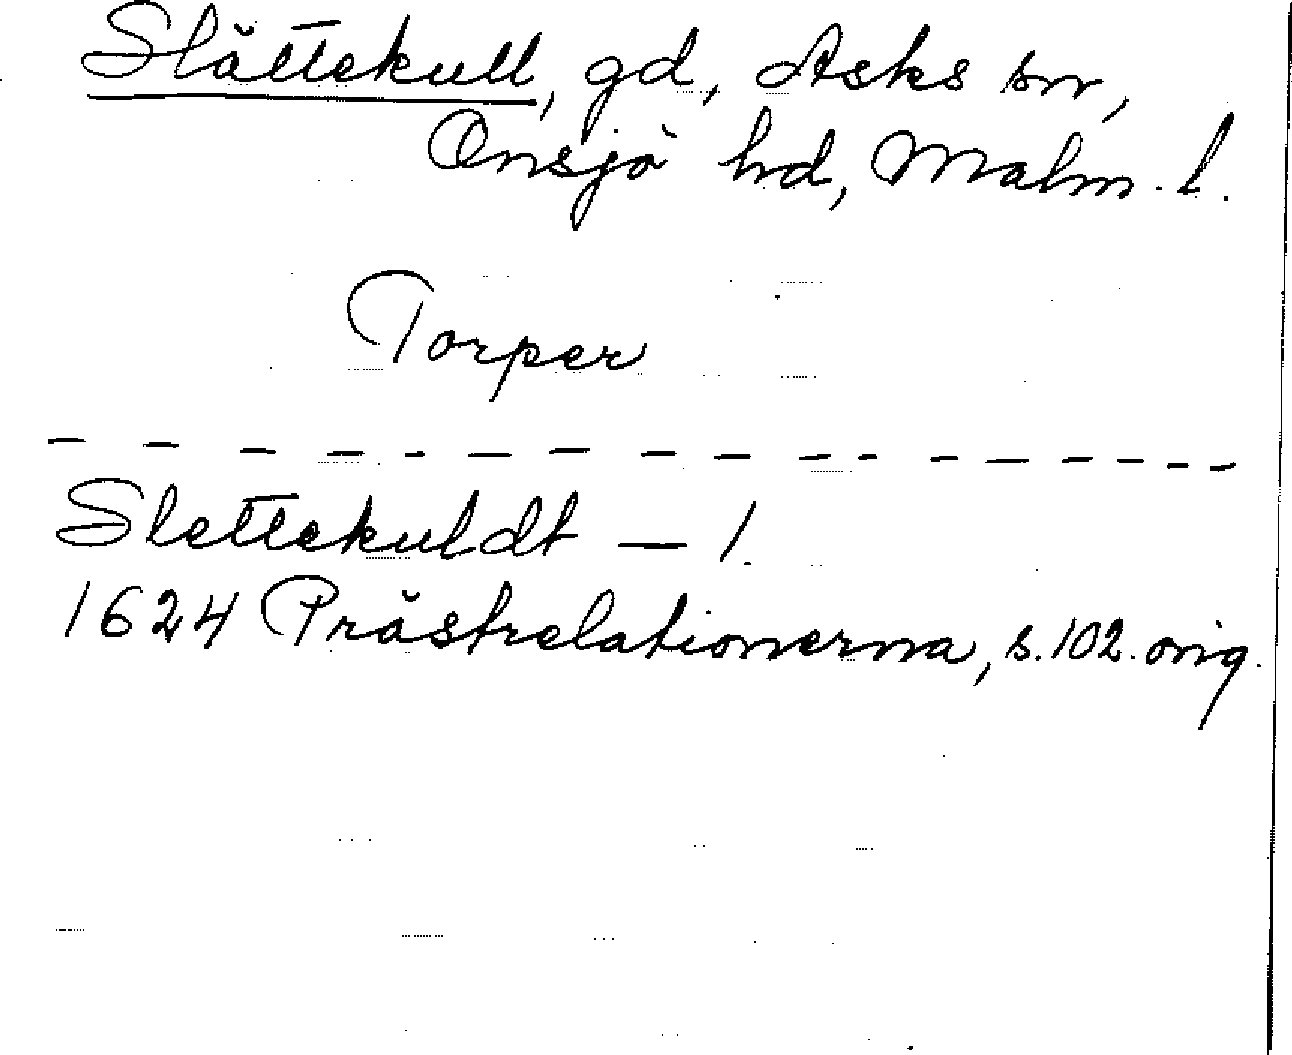 Slättekull, gd, Asks sn,
Onsjö hd, Malm. l.
Torper
Slettekuldt — 1.
1624 Prästrelationerna, s. 102. orig.